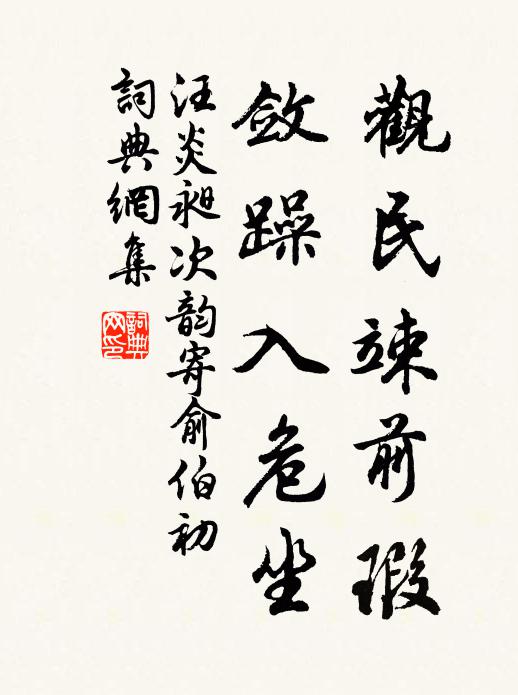 觀民竦前瑕
斂躁入危坐
汪炎昶次韵寄俞伯初
詞典網集
詞典网印